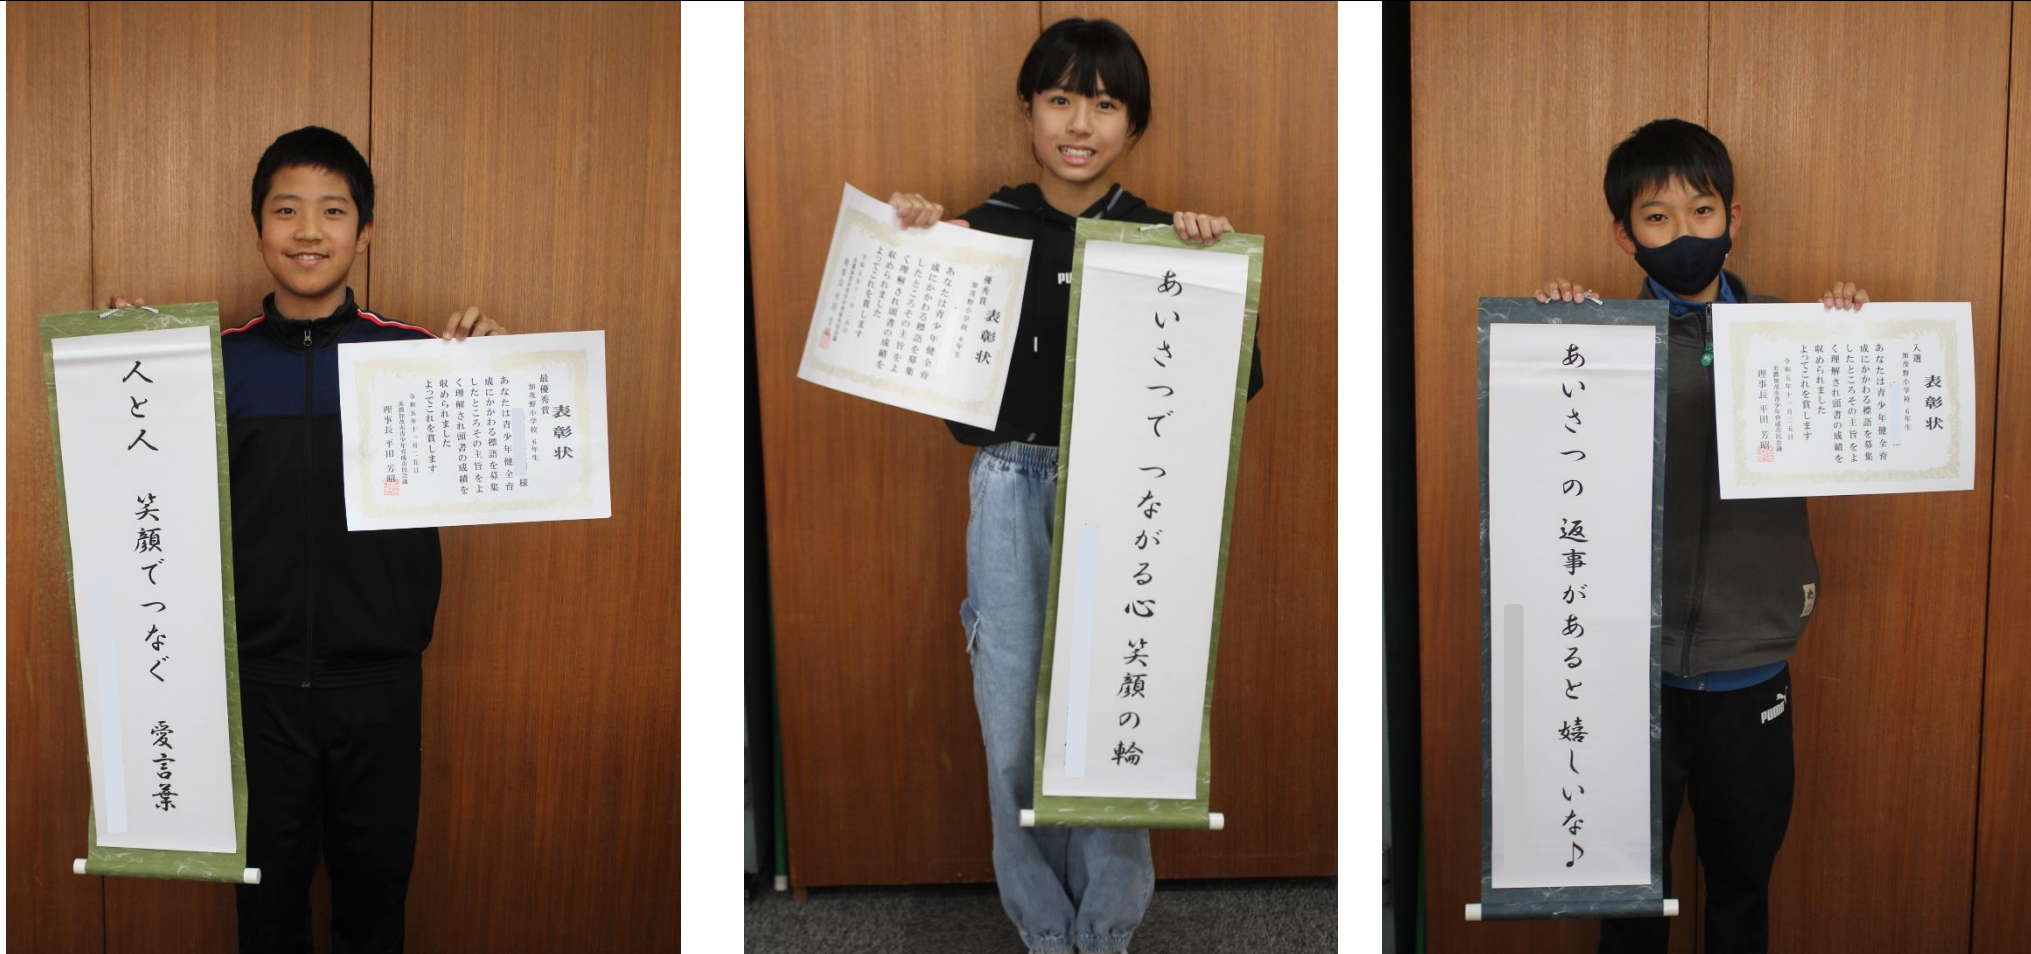 人と人 笑顔でつなぐ 愛言葉
表彰状
最優秀賞
加茂野小学校 6年生
様
あなたは青少年健全育
成にかかわる標語を募集
したところその主旨をよ
く理解され頭書の成績を
収められました
よってこれを賞します
令和五年十一月二五日
美濃加茂市青少年育成市民会議
理事長 平田 芳昭
あいさつで つながる心 笑顔の輪
表彰状
優秀賞
加茂野小学校 6年生
あなたは青少年健全育
成にかかわる標語を募集
したところその主旨をよ
く理解され頭書の成績を
収められました
よってこれを賞します
PU
あいさつの 返事があると 嬉しいな♪
表彰状
入選
加茂野小学校 6年生
あなたは青少年健全育
成にかかわる標語を募集
したところその主旨をよ
く理解され頭書の成績を
収められました
よってこれを賞します
令和五年十一月二五日
美濃加茂市青少年育成市民会議
理事長 平田 芳昭
PUMA